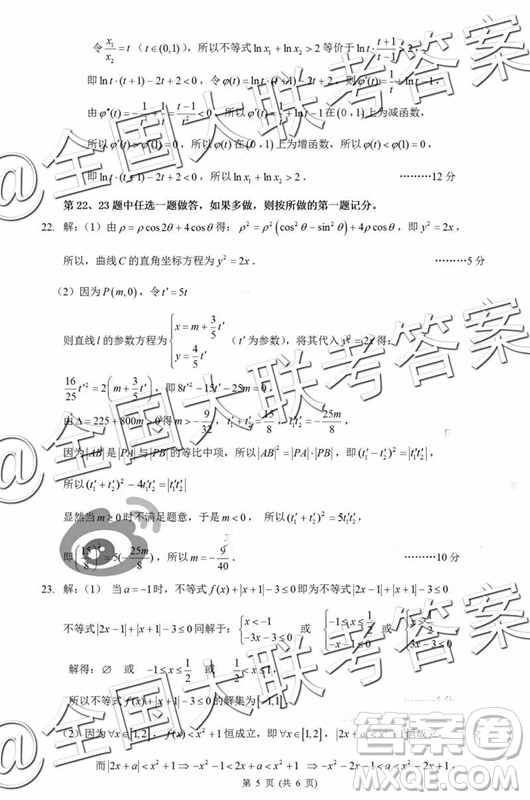 令 x₁/x₂ = t （t∈(0,1)），所以不等式 ln x₁ + ln x₂ > 2 等价于 ln t ·
即 ln t·(t+1)−2t+2<0，令 φ(t)= ln t·(t+1)−2t+2，则 φ′(t)= 1/t + ln t −1，
由 φ″(t)= −1/t² + 1/t = (t−1)/t² <0，所以 φ′(t)= 1/t + ln t −1 在(0，1)上为减函数，
所以 φ′(t)>φ′(1)=0，所以 φ(t) 在(0，1)上为增函数，所以 φ(t)<φ(1)=0
即 ln t·(t+1)−2t+2<0，所以 ln x₁ + ln x₂ > 2．………12 分
第 22、23 题中任选一题做答，如果多做，则按所做的第一题记分。
22. 解：（1）由 ρ = ρ cos2θ + 4cosθ 得：ρ² = ρ²(cos²θ − sin²θ)+4ρ cosθ，即 y² = 2x，
所以，曲线 C 的直角坐标方程为 y² = 2x． ………5 分
（2）因为 P(m,0)，令 t′ = 5t
则直线 l 的参数方程为 { x = m + 3/5 t′ y = 4/5 t′ （t′ 为参数），将其代入 y² = 2x 得：
16/25 t′² = 2(m + 3/5 t′)，即 8t′² −15t′ −25m = 0
由 Δ = 225+800m > 0 得 m > −9/32，t₁′+t₂′ = 15/8，t₁′t₂′ = −25m/8
因为 |AB| 是 |PA| 与 |PB| 的等比中项，所以 |AB|² = |PA|·|PB|，即 (t₁′−t₂′)² = |t₁′t₂′|，
所以 (t₁′+t₂′)² − 4t₁′t₂′ = |t₁′t₂′|
显然当 m ≥ 0 时不满足题意，于是 m < 0， 所以 (t₁′+t₂′)² = 5t₁′t₂′，
即 (15/8)² = 5(−25m/8)，所以 m = −9/40． ………10 分
23. 解：（1） 当 a = −1 时，不等式 f(x)+|x+1|−3≤0 即为不等式 |2x−1|+|x+1|−3≤0
不等式 |2x−1|+|x+1|−3≤0 同解于：{ x<−1 −3x−3≤0 或
解得：∅ 或 −1≤x≤ 1/2 或 1/2 <x≤1
所以不等式 f(x)+|x+1|−3≤0 的解集为 [−1,1]． ………5 分
（2）因为 ∀x∈[1,2]，f(x)<x²+1 恒成立，即 ∀x∈[1,2]，|2x+a|<x²+1 恒成立，
而 |2x+a|<x²+1 ⇒ −x²−1<2x+a<x²+1 ⇒ −x²−2x−1<a<x²−2x+1，
第 5 页（共 6 页）
@全国大联考答案
@全国大联考答案
@全国大联考答案